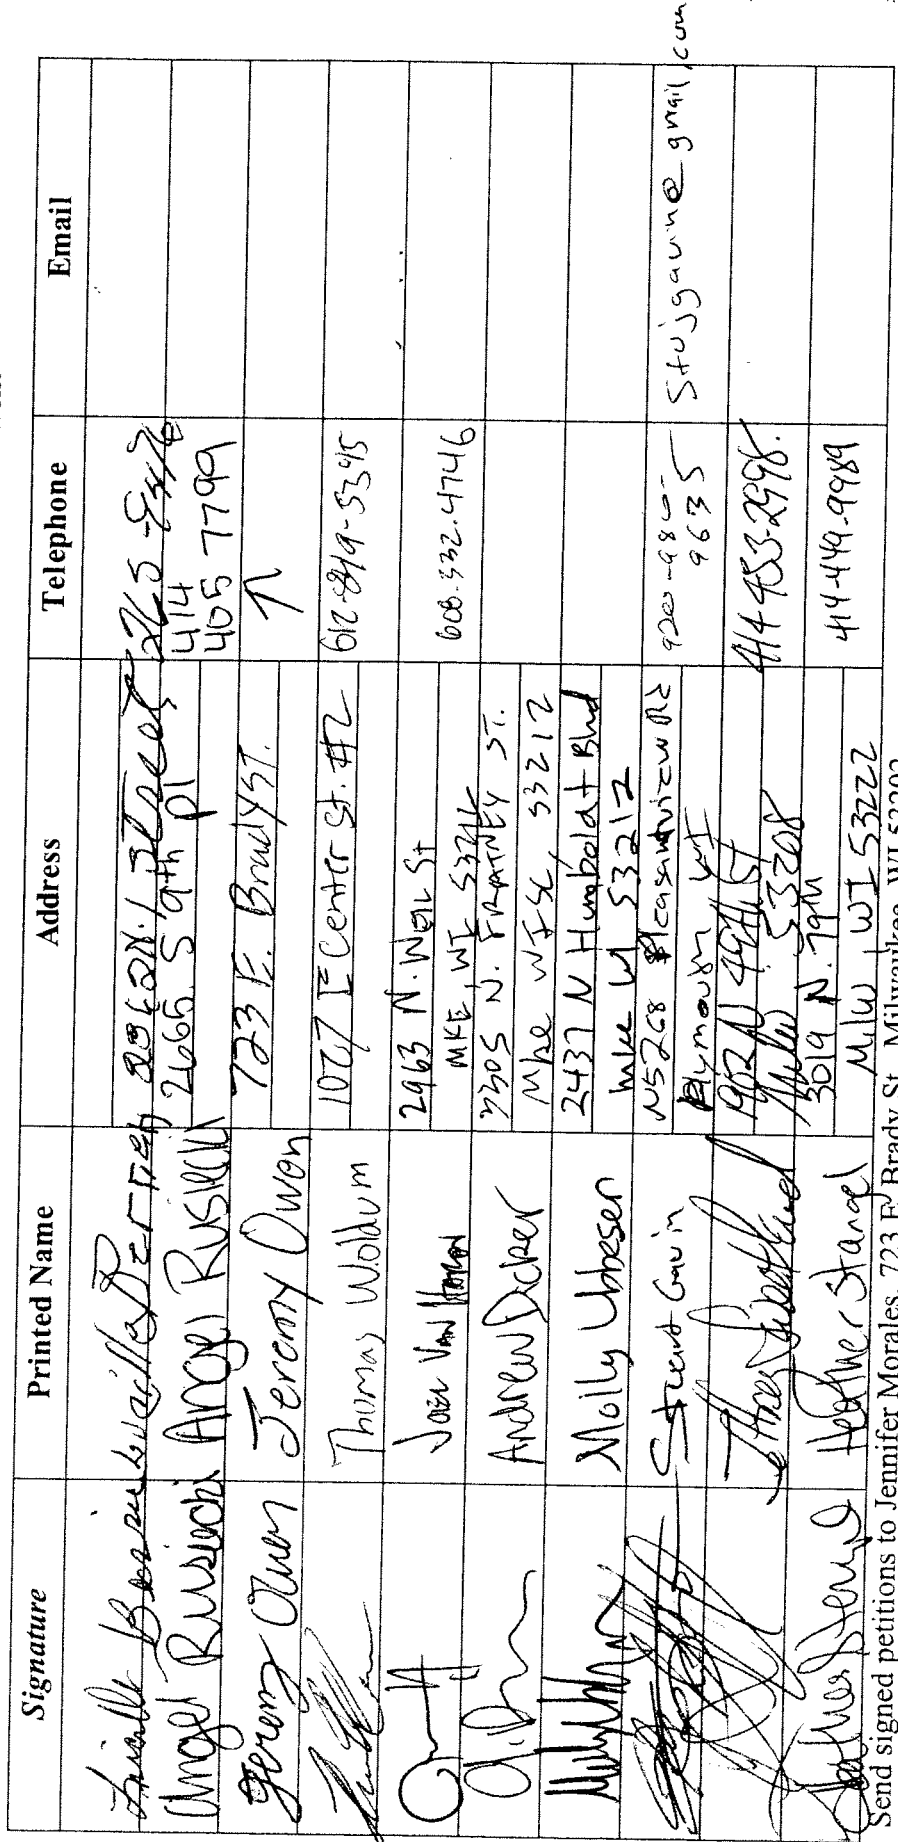 Signature Printed Name Address Telephone Email
Lucille Berrien Lucille Berrien Street 265-
Angel Rusiecki Angel Rusiecki 2665 S 9th pl 414
405 7799
Jeremy Owen Jeremy Owen 723 E. Brady ST. ↑
Thomas Woldum 1027 E Center St. #2 612-849-5395
Joel Van Haren 2963 N. Weil St
MKE, WI 53212 608.332.4746
Andrew Dicker N. FRATNEY ST.
Mke WI 53212
Molly Ubbesen 2437 N Humboldt Blvd
Mke WI 53212
Stuart Gavin N5268 Pleasantview Rd 920-980-
Plymouth WI 9635 Stujgavin@gmail.com
1952 N 49th St 414 453-2998.
Milw 53208
Heather Stangel 3019 N. 79th
Milw WI 53222 414-449-9989
Send signed petitions to Jennifer Morales, 723 E. Brady St., Milwaukee, WI 53202